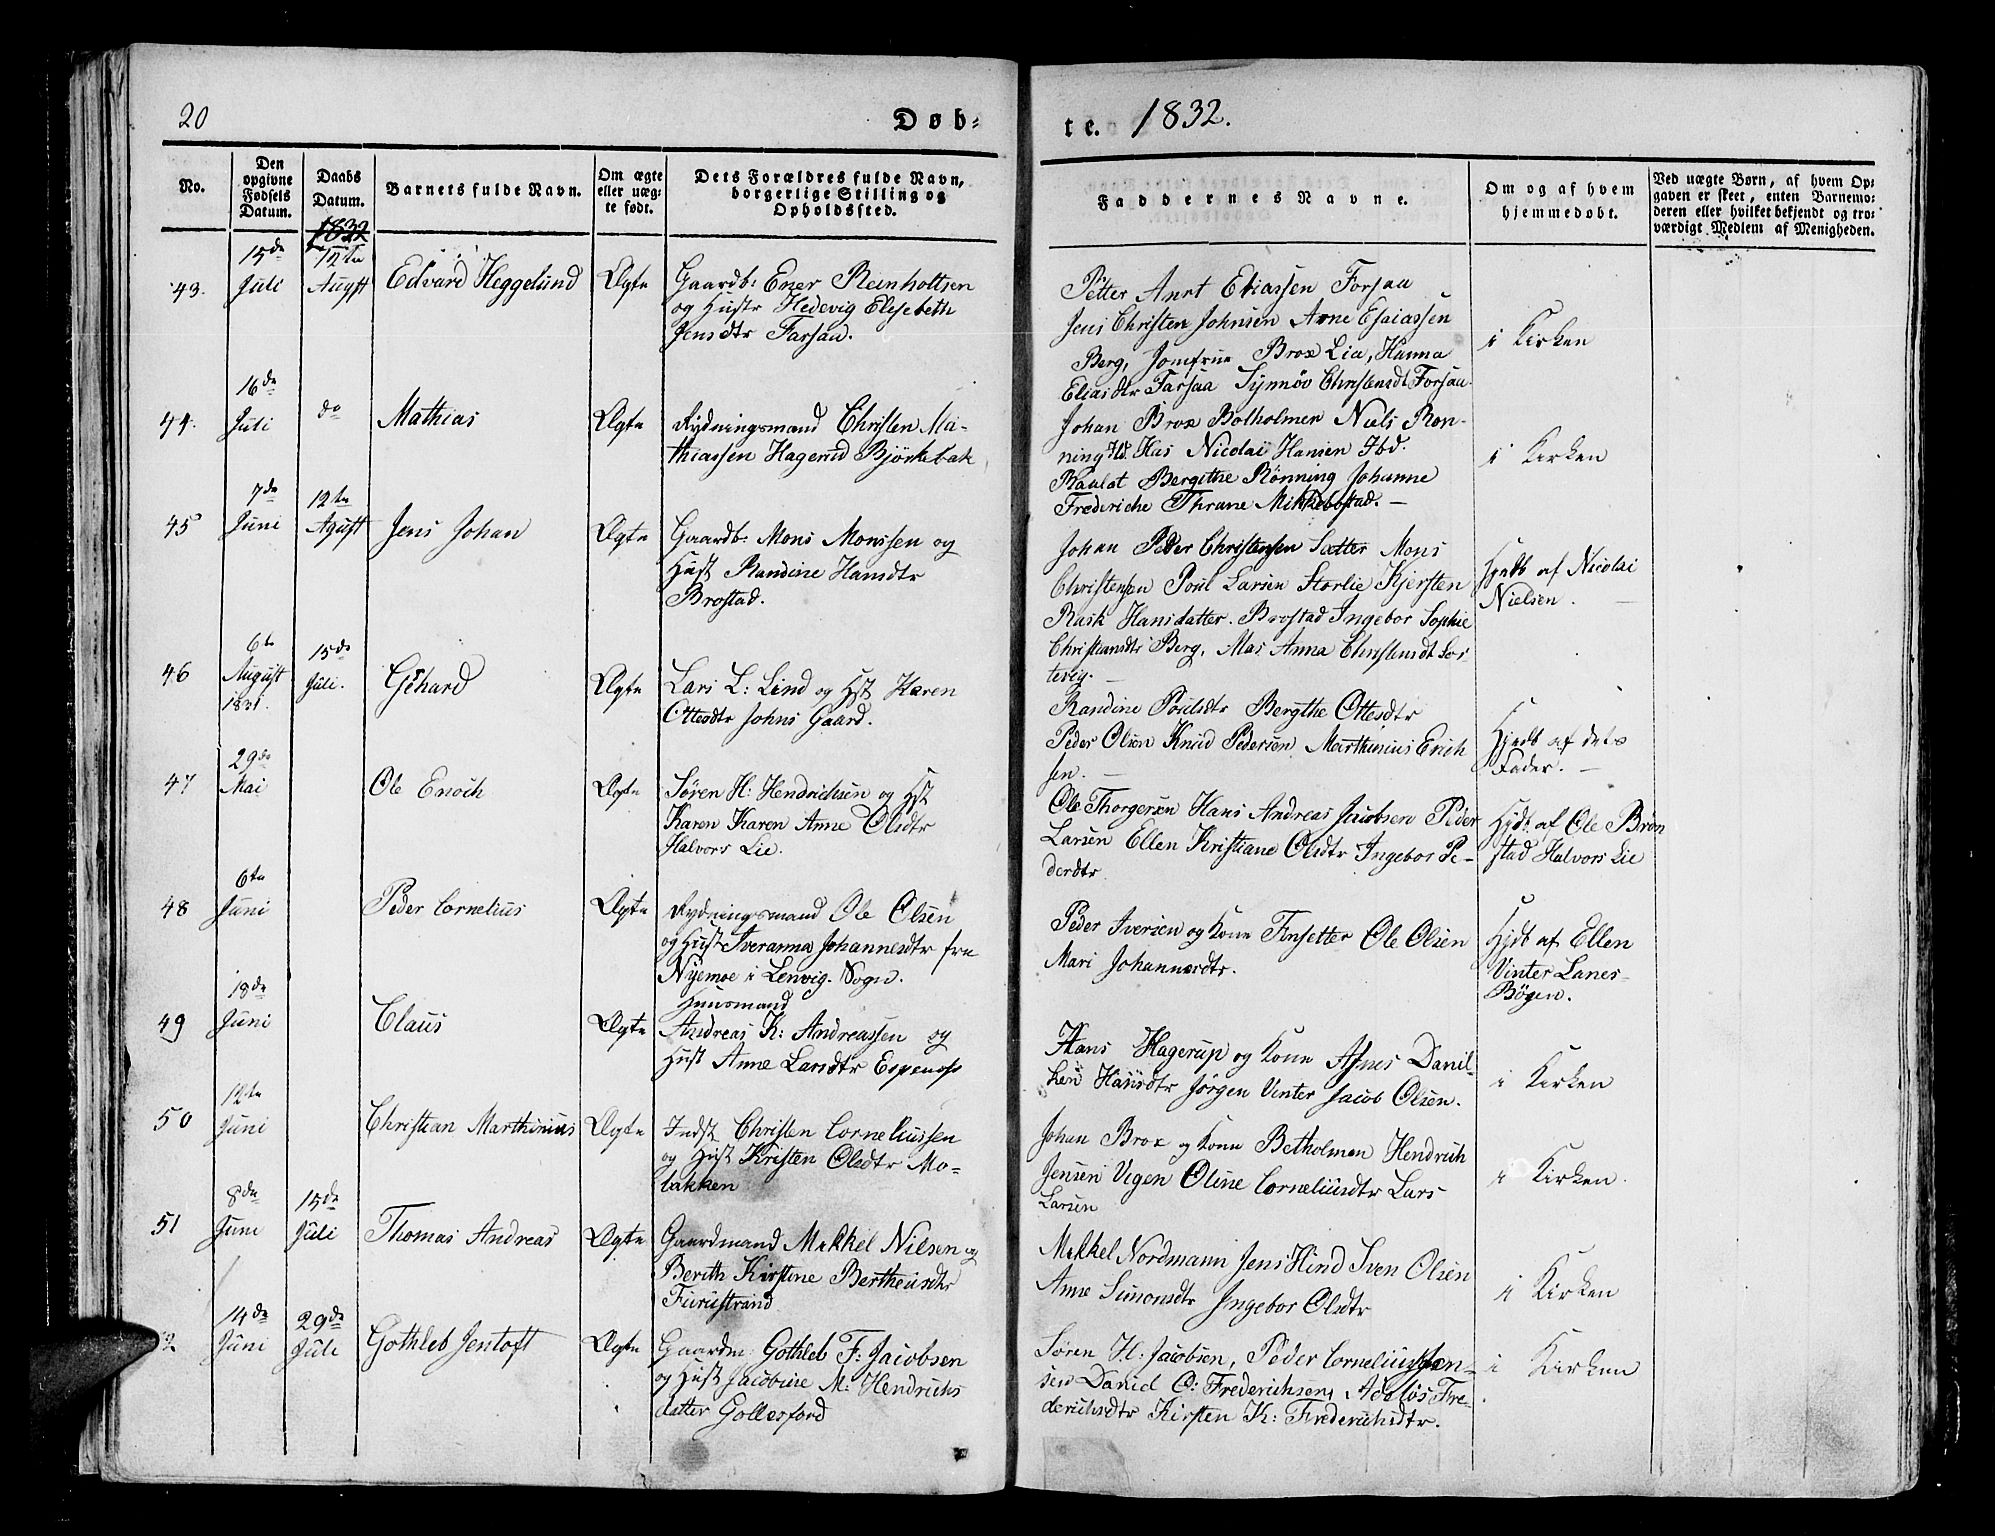 20
Døb-
te. 1832.
No.
Den opgivne Fødsels Datum.
Daabs Datum.
Barnets fulde Navn.
Om ægte eller uægte født.
Dets Forældres fulde Navn, borgerlige Stilling og Opholdssted.
Faddernes Navne.
Om og af hvem hjemmedøbt.
Ved uægte Børn, af hvem Opgaven er skeet, enten Barnemoderen eller hvilket bekjendt og troværdigt Medlem af Menigheden.
1832
43.
15de
Juli
12te
Augst
Edvard Heggelund
Ægte
Gaardb: Ener Reinholtsen
og Hustr Hedevig Elisebeth
Jensdtr Farsau.
Petter Arnt Eliassen Forsaa
Jens Christen Johnsen Arne Esaiassen
Berg, Jomfrue Brox Lia, Hanna
Eliasdtr Farsaa Synnöv Christensdt Forsaa.
i Kirken
44.
16de
Juli
do
Mathias
Ægte
Rydningsmand Christen Ma-
thiassen Hagerud Björkebak
Johan Brox Bolholmen Niels Ron-
ning Has Nicolai Hansen Ibd.
Raulat Bergithe Rönning Johanne
Frederiche Thrane Mikkelbostad. —
i Kirken
45
7de
Juni
12te
Agust
Jens Johan
Ægte
Gaardb. Mons Monssen og
Hust Randine Hansdtr
Brostad.
Johan Peder Christensen Sætter Mons
Christensen Poul Larsen Storlie Kjersten
Rask Hansdatter. Brostad Ingebor Sophie
Christiansdtr Berg, Mas Anna Christensdt Sor
tevig. —
Hjmdb af Nicolai
Nielsen. —
46
6te
August
1831.
15de
Juli.
Gehard
Ægte
Lars L: Lind og Hst Karen
Ottesdtr Johns Gaard.
Randine Poulsdtr Bergthe Ottesdtr
Peder Olsen Knud Pedersen Marthinius Erich
sen. —
Hjmdb af dets
Fader. —
47
29de
Mai
Ole Enoch
Ægte
Søren H: Hendrichsen og Hst
Karen Karen Anne Olsdtr
Halvors Lie.
Ole Thorgersen Hans Andreas Jacobsen Peder
Larsen Ellen Kristiane Olsdtr Ingebor Pe-
derdtr
Hjdt af Ole Bron
stad Halvors Lie
48
6te
Juni
Peder Cornelius
Ægte
Rydningsmand Ole Olsen
og Hust Iveranna Johannesdtr fra
Nyemoe i Lenvig. Sogn.
Peder Iversen og Kone Finsetter Ole Olsen
Mari Johannesdtr.
Hjdt af Ellen
Vinter Lanes-
Bögen.
49
18de
Juni
Claus
Ægte
Huusmand
Andreas K: Andreassen og
Hust Anne Larsdtr Espenes
Hans Hagerup og Kone Asnes Danil-
Hansdtr Jørgen Vinter Jacob Olsen.
i Kirken
50
12te
Juni
Christian Marthinius
Ægte
Indst Christen Corneliussen
og Hust Kristen Olsdtr Mo-
bakken
Johan Brox og Kone Betholmen Hendrich
Jensen Vigen Oline Corneliusdtr Lars
Larsen
i Kirken.
51
8de
Juni
15de
Juli
Thomas Andreas
Ægte
Gaardmand Mekkel Nilsen og
Berith Kirstine Bertheusdtr
Furustrand
Mekkel Nordmann Jens Hind Sven Olsen
Anne Simonsdtr Ingebor Olsdtr
i Kirken
2
14de
Juni
29de
Juli
Gothleb Jentoft
Ægte
Gaardm: Gothleb F: Jacobsen
og Hust Jacobine M: Hendrichs
datter Gollesford
Søren H: Jacobsen, Peder Cornelius Jen-
sen Danid O: Frederichsen, Adelös Fre-
derichsdtr Kirsten K: Frederichsdtr.
i Kirken